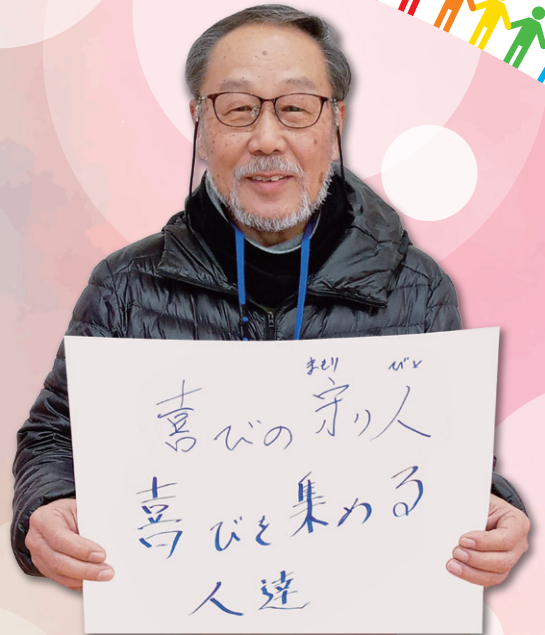 まもり びと
喜びの 守り人
喜びを集める
人達